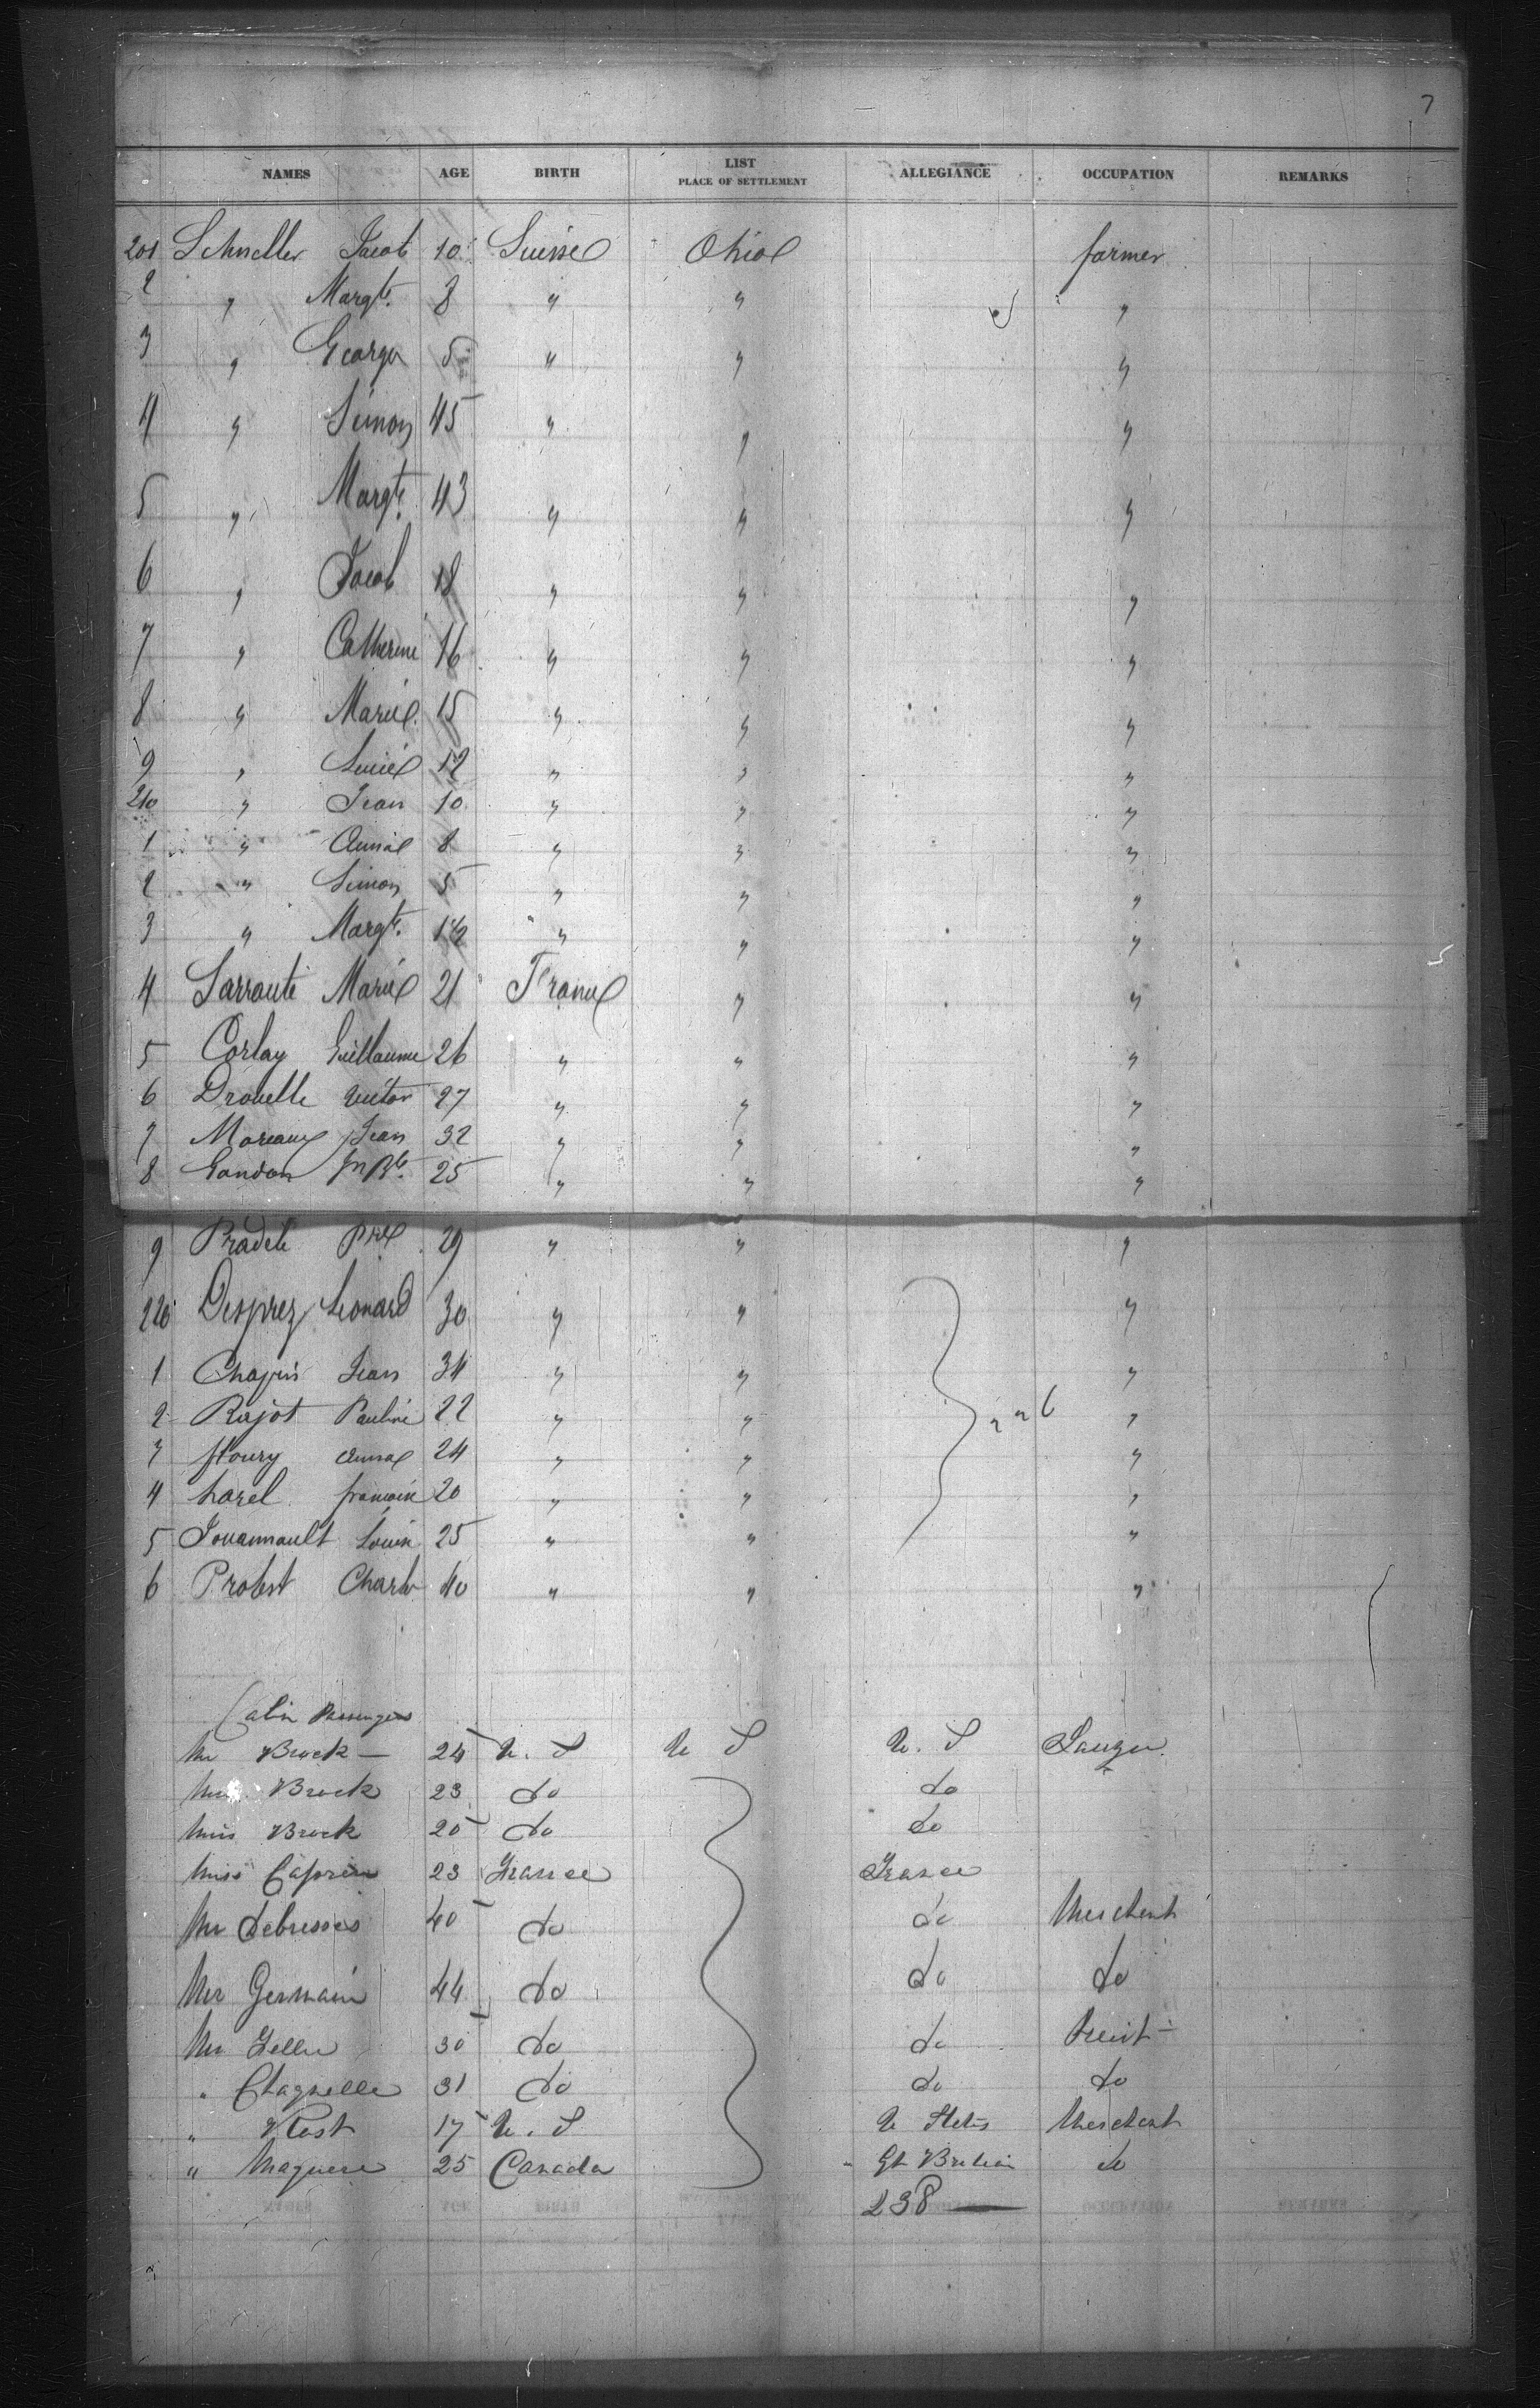 7
NAMES AGE BIRTH LIST PLACE OF SETTLEMENT ALLEGIANCE OCCUPATION REMARKS
201 Schneller Jacob 10 Suisse Ohio farmer
2 " Margte. 8 " " "
3 " George 5 " " "
4 " Simon 45 " " "
5 " Margte. 43 " " "
6 " Jacob 18 " " "
7 " Catherine 16 " " "
8 " Marie 15 " " "
9 " 12 " " "
210 " Jean 10 " " "
1 " Anna 8 " " "
2 " Simon 5 " " "
3 " Margte. 1 1/2 " " "
4 Sarraute Marie 21 France " "
5 Corlay Guillaume 26 " " "
6 Drouelle Victor 27 " " "
7 Moreaux Jean 32 " " "
8 Gandon Jn Bte. 25 " " "
9 Pradele Pre 29 " " "
220 Desprez Leonard 30 " " "
1 Chapuis Jean 34 " " "
2 Rajot Pauline 22 " " 226 "
3 fleury Anna 24 " " "
4 harel francois 20 " " "
5 Jouannault Louise 25 " " "
6 Probst Charles 40 " " "
Cabin Passengers
Mr Brock — 24 U. S U S U. S
Mrs Brock 23 do do
Miss Brock 20 do do
Miss 23 France France
Mr Debresses 40 do do Merchant
Mr Germain 44 do do do
Mr 30 do do Priest
" Chagnelle 31 do do do
" 17 U. S U States Merchant
" Maguere 25 Canada Gt Britain do
238